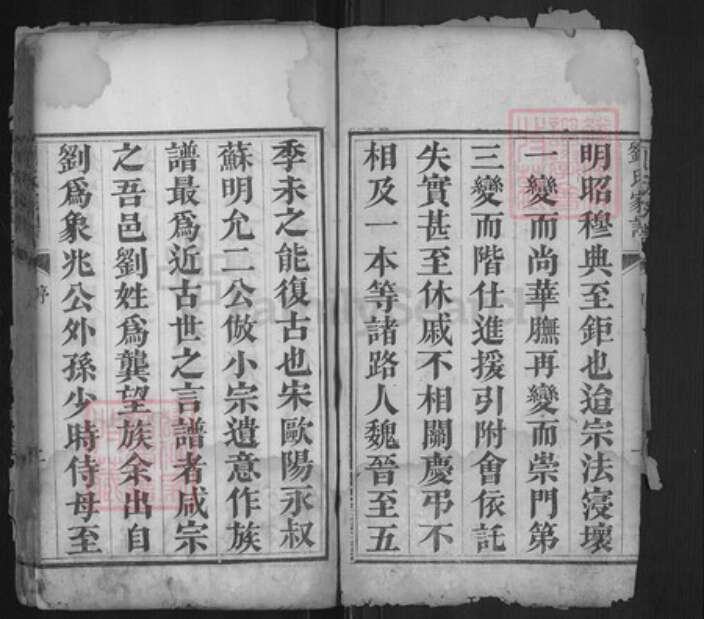 劉氏家譜
明昭穆典至鉅也迨宗法寖壞
一變而尚華膴再變而崇門第
三變而階仕進援引附會依託
失實甚至休戚不相關慶弔不
相及一本等諸路人魏晉至五
季未之能復古也宋歐陽永叔
蘇明允二公倣小宗遺意作族
譜最為近古世之言譜者咸宗
之吾邑劉姓爲龔望族余出自
劉爲象兆公外孫少時侍母至
序
FamilySearch